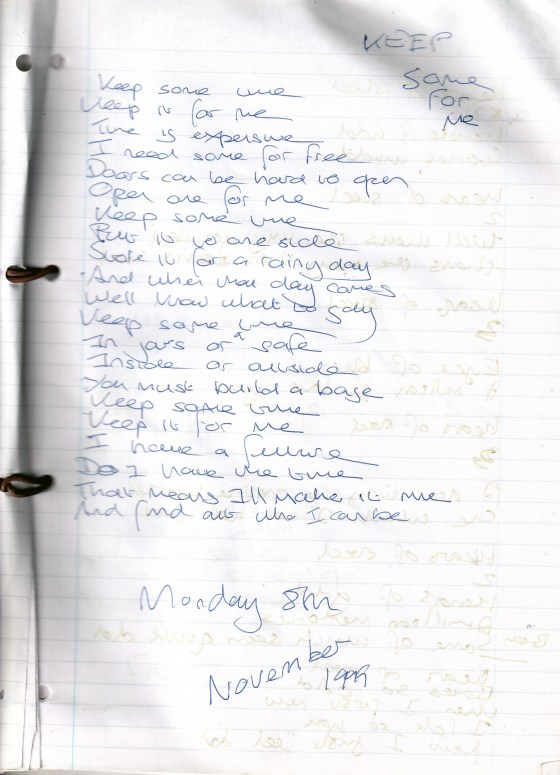 KEEP
Some
For
Me
Keep some time
Keep it for me
Time is expensive
I need some for free
Doors can be hard to open
Open one for me
Keep some time
Put it to one side
Store it for a rainy day
And when that day comes
We'll know what to say
Keep some time
In jars or a safe
Inside or outside
You must build a base
Keep some time
Keep it for me
I have a future
Do I have the time
That means I'll make it me
And find out who I can be
Monday 8th
November
1999